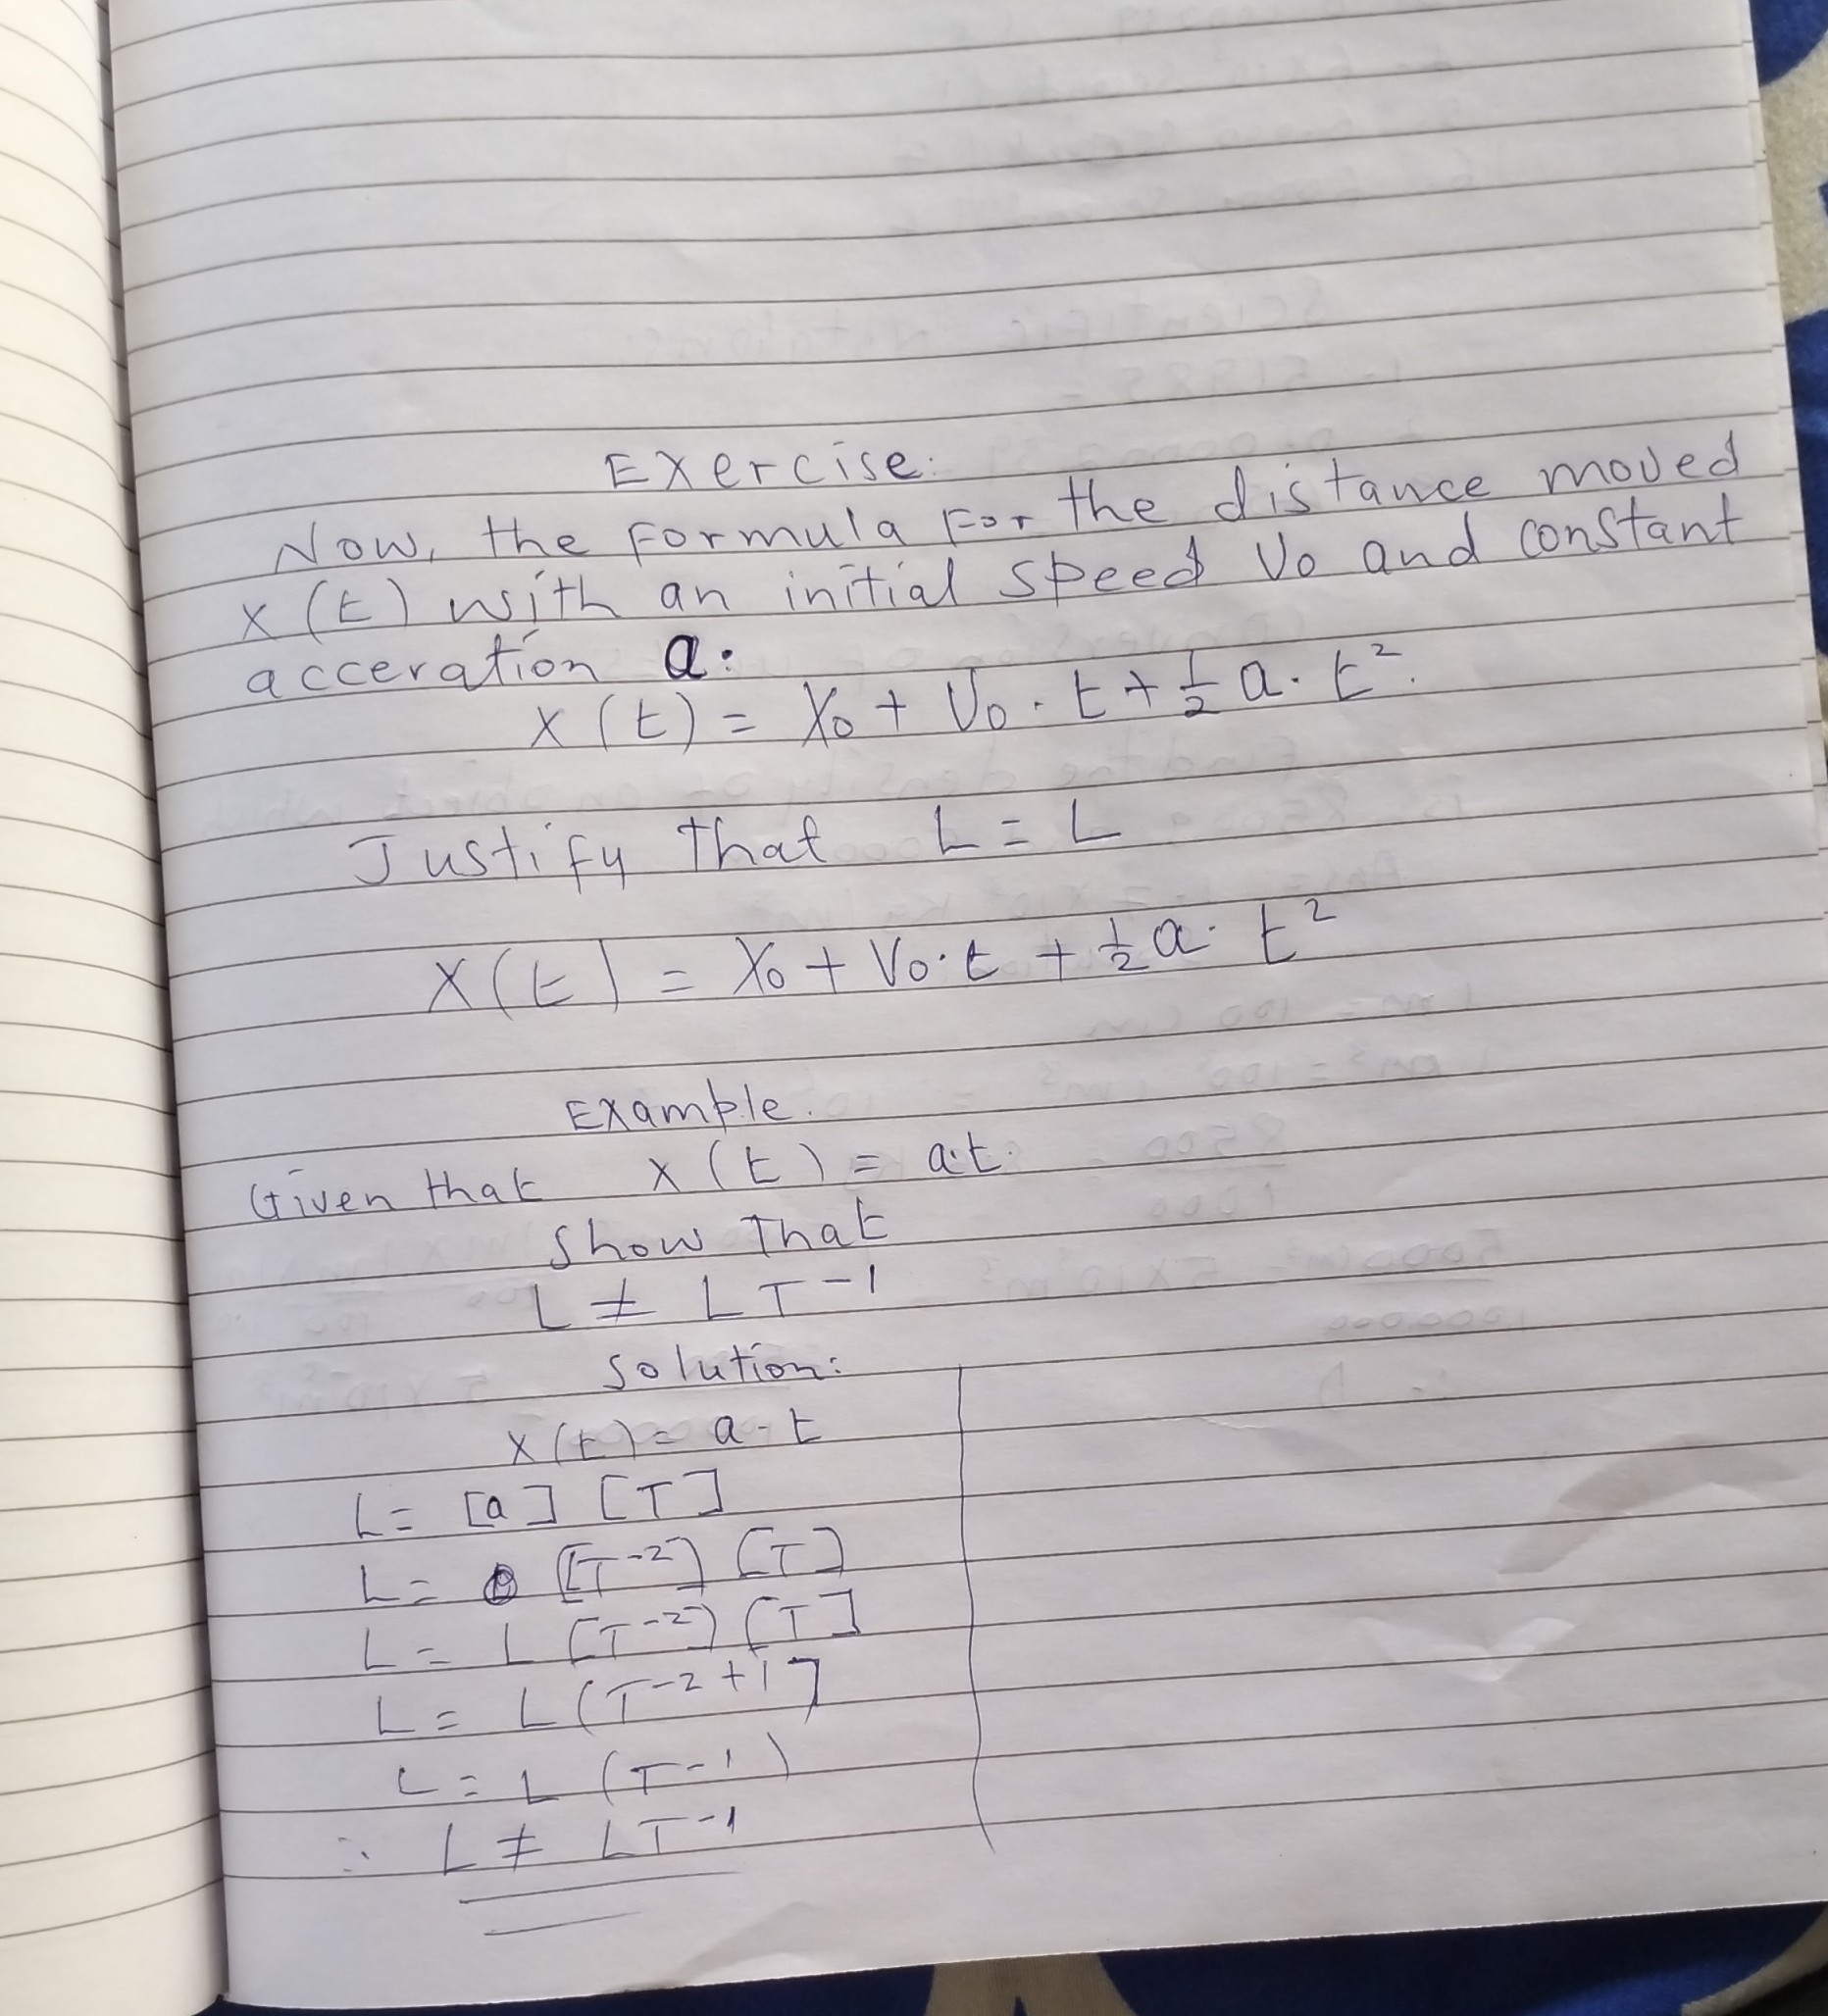 Exercise:
Now, the formula For the distance moved
x (t) with an initial speed Vo and constant
acceration a:
x (t) = Xo + Vo . t + 1/2 a . t².
Justify that L = L
X(t) = Xo + Vo . t + 1/2 a . t²
Example.
Given that x (t) = a.t.
Show that
L ≠ L T⁻¹
Solution:
x (t) = a - t
L = [a] [T]
L = [T⁻²) [T]
L = L [T⁻²) [T]
L = L (T⁻²⁺¹]
L = L (T⁻¹)
∴ L ≠ LT⁻¹